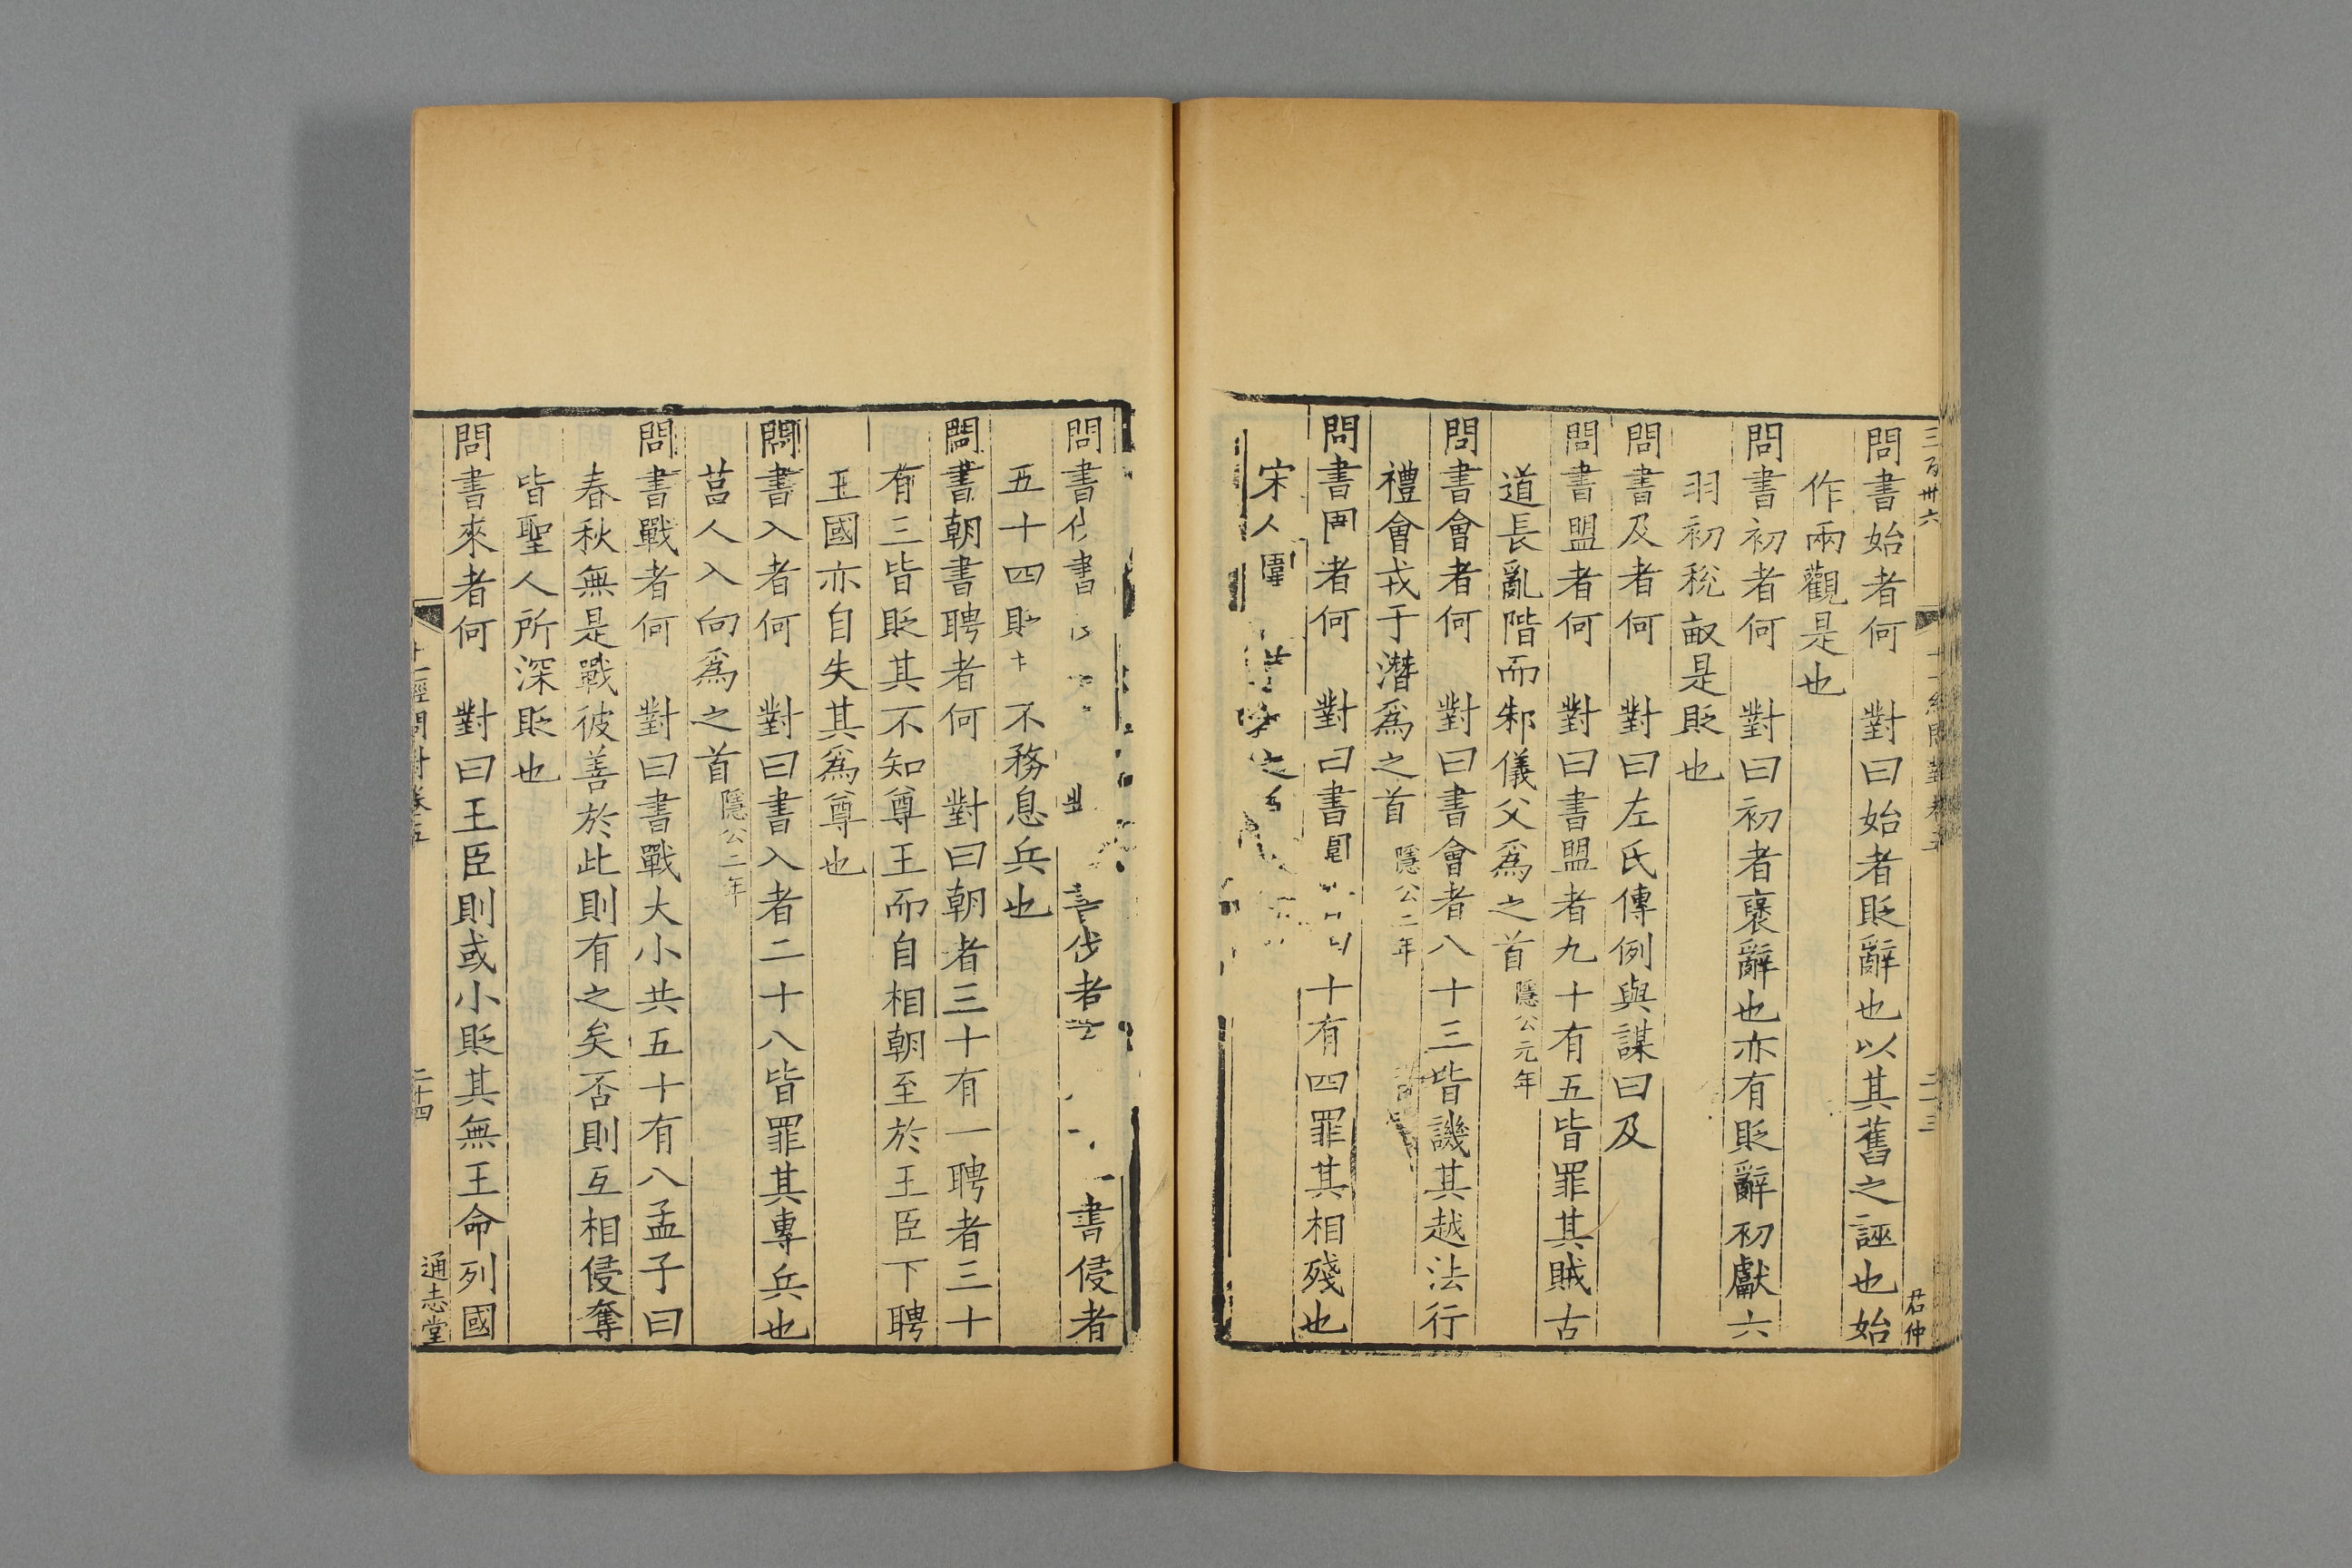 三百卅六
君仲
問書始者何　對曰始者貶辭也以其舊之誣也始
作兩觀是也
問書初者何　對曰初者褒辭也亦有貶辭初獻六
羽初稅畝是貶也
問書及者何　對曰左氏傳例與謀曰及
問書盟者何　對曰書盟者九十有五皆罪其賊古
道長亂階而邾儀父爲之首隱公元年
問書會者何　對曰書會者八十三皆譏其越法行
禮會戎于潛爲之首隱公二年
問書者何　對曰書十有四罪其相殘也
宋人圍
問書書伐者書侵者
五十四貶不務息兵也
問書朝書聘者何　對曰朝者三十有一聘者三十
有三皆貶其不知尊王而自相朝至於王臣下聘
王國亦自失其爲尊也
問書入者何　對曰書入者二十八皆罪其專兵也
莒人入向爲之首隱公二年
問書戰者何　對曰書戰大小共五十有八孟子曰
春秋無是戰彼善於此則有之矣否則互相侵奪
皆聖人所深貶也
問書來者何　對曰王臣則或小貶其無王命列國
二十四
通志堂